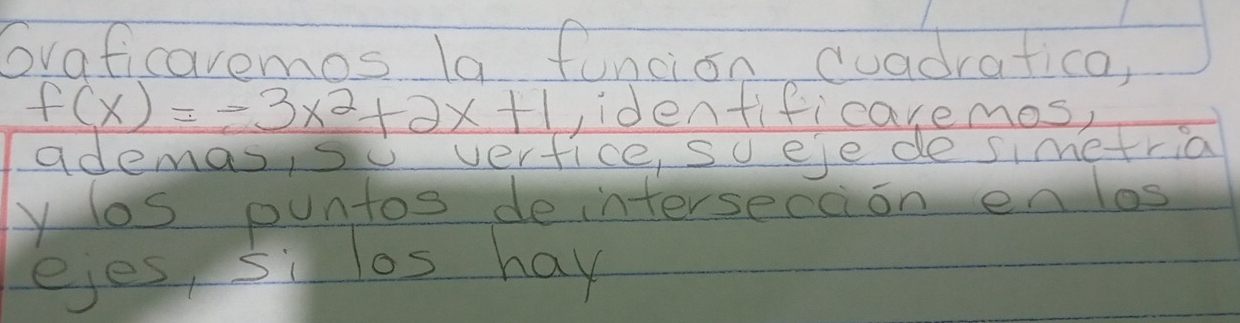 Graficaremos la función cuadratica,
f(x) = -3x²+2x+1, identificaremos,
ademas, su vertice, su eje de simetria
y los puntos de intersección en los
ejes, si los hay